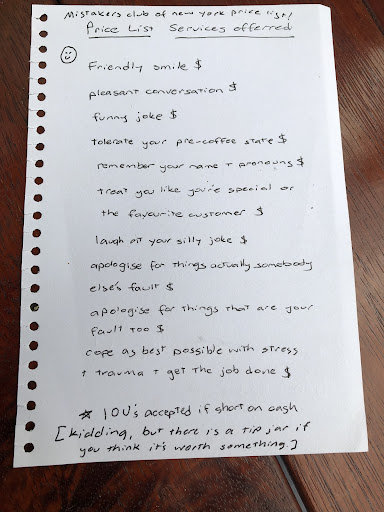 Mistakers club of new york price list!
Price List Services offerred
Friendly smile $
pleasant conversation $
funny joke $
tolerate your pre-coffee state $
remember your name + pronouns $
treat you like you're special or
the favourite customer $
laugh at your silly joke $
apologise for things actually somebody
else's fault $
apologise for things that are your
fault too $
cope as best possible with stress
+ trauma + get the job done $
* IOU's accepted if short on cash
[kidding, but there is a tip jar if
you think it's worth something.]